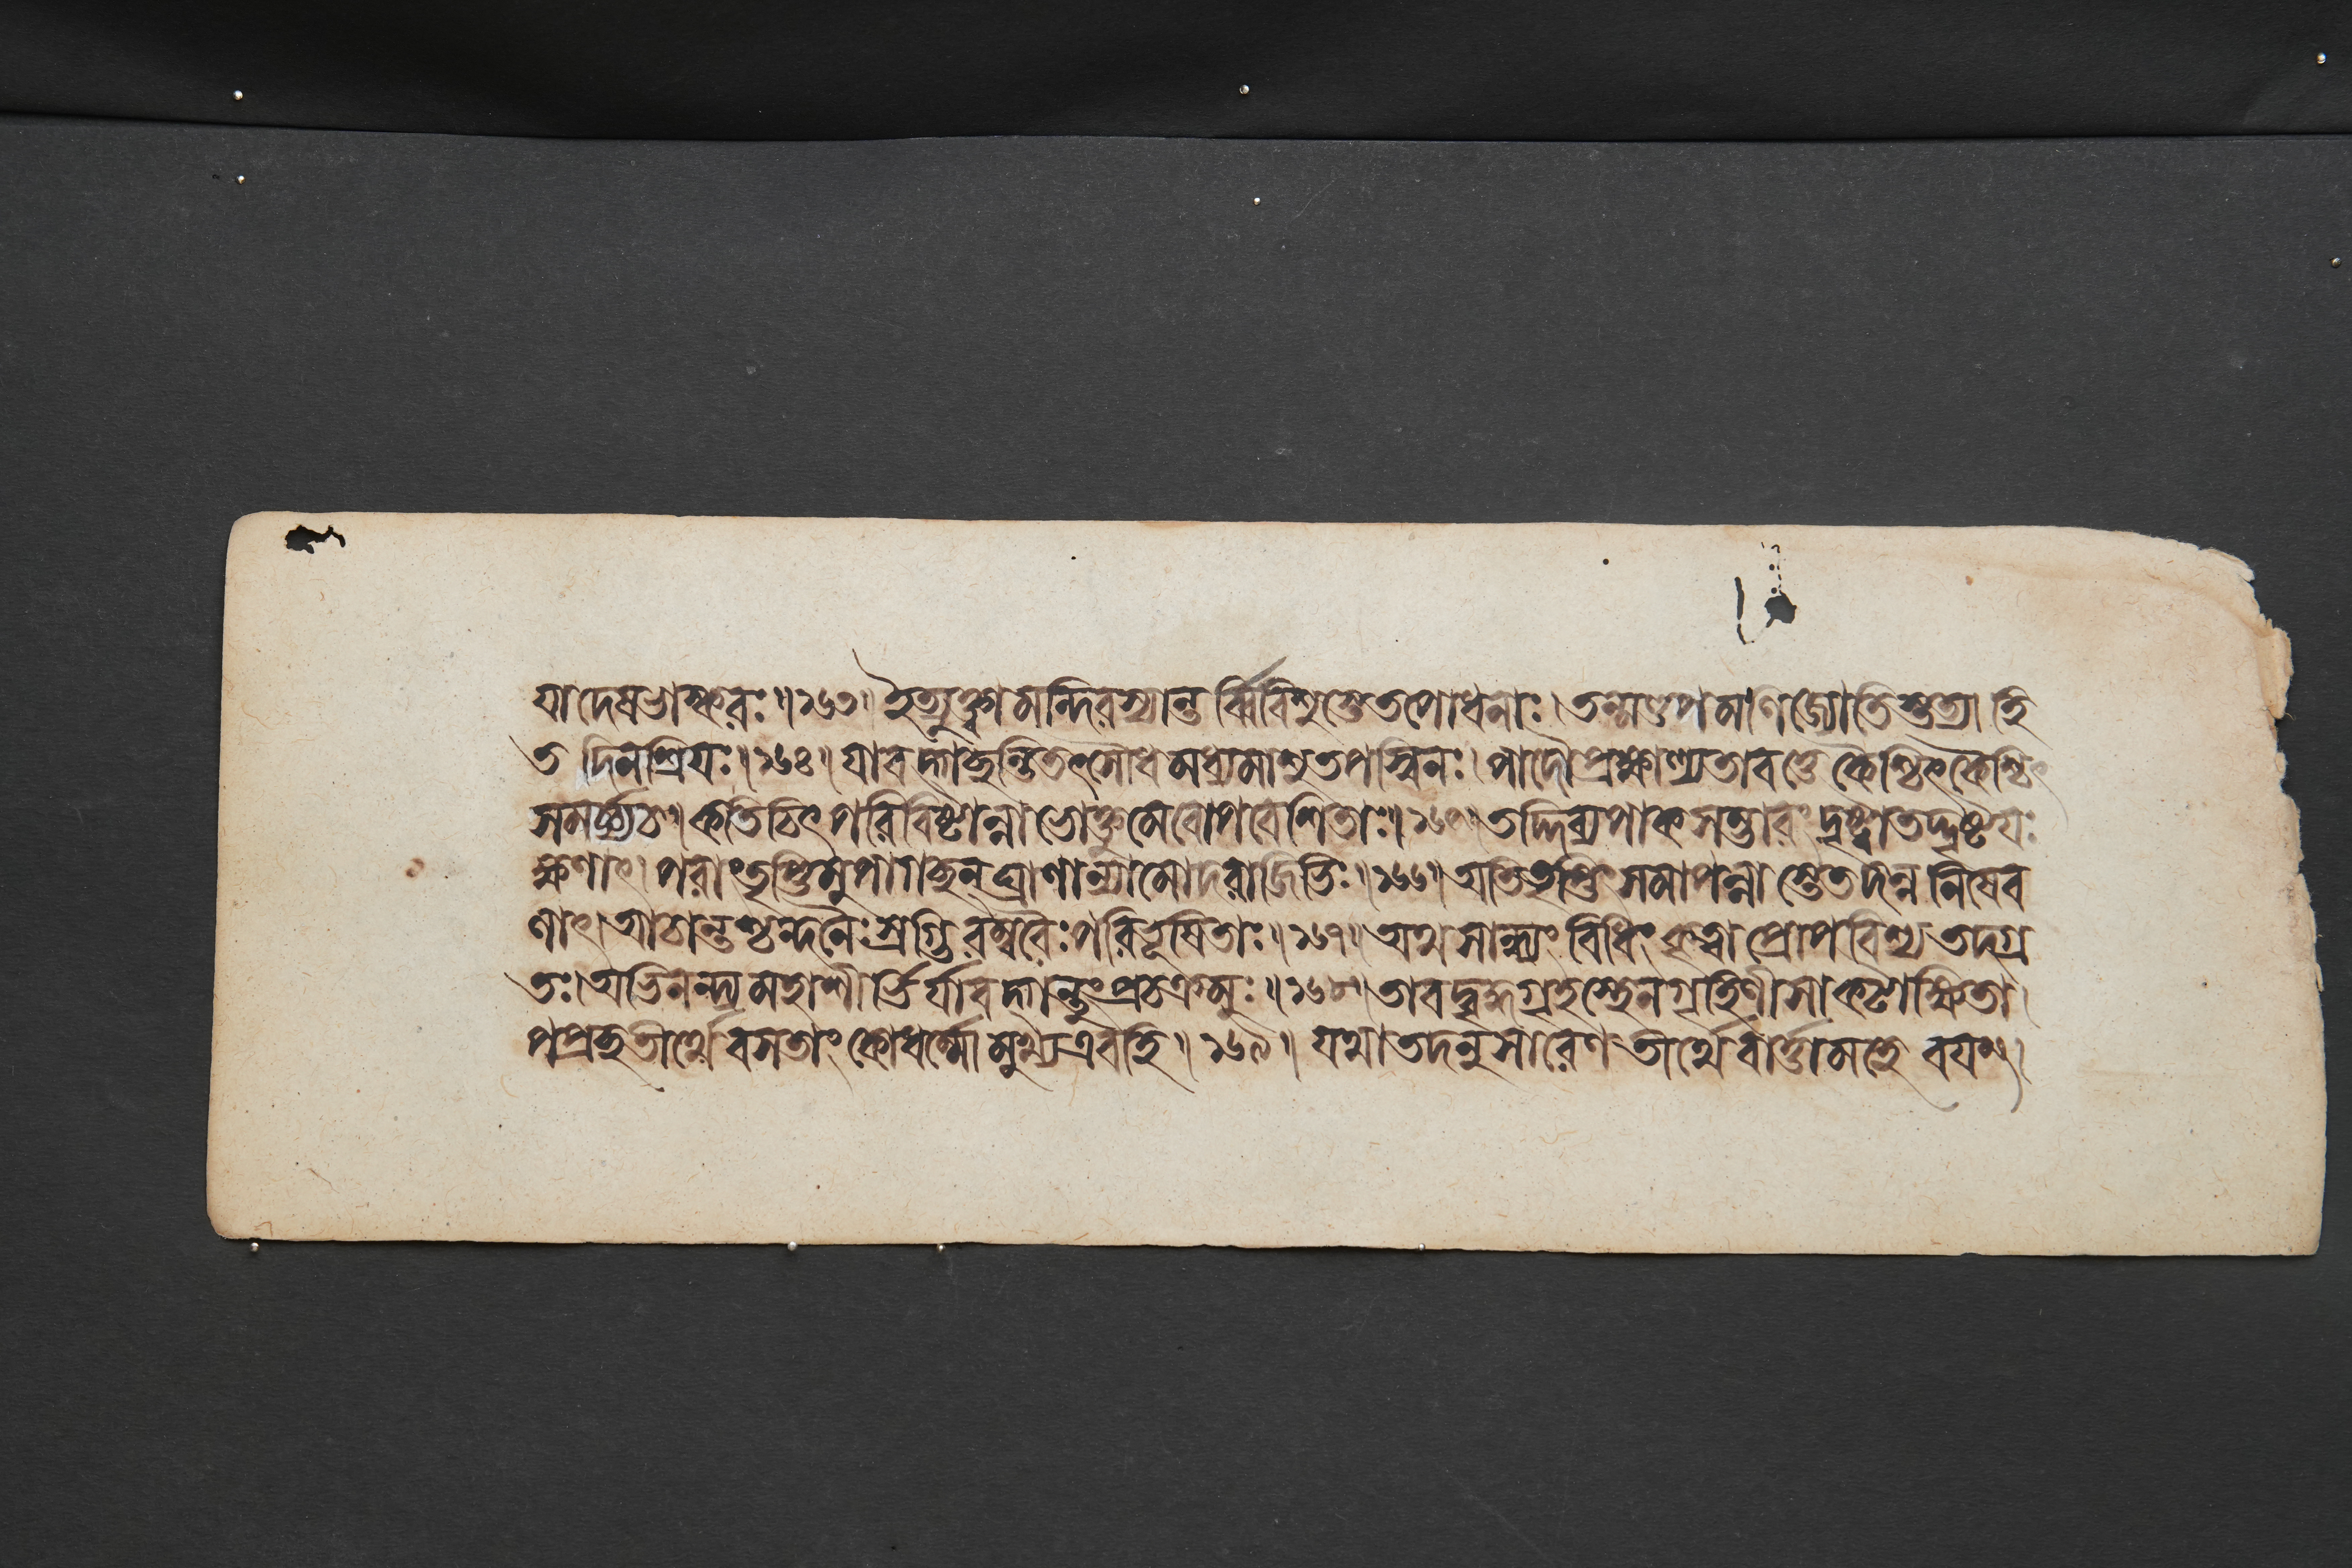 যাদেষভাস্করঃ॥১৬৩॥ইত্যুক্ত্বামন্দিরস্যান্তর্ব্বিবিশুস্তেতপোধনাঃ।তন্মণ্ডপমণিজ্যোতিস্তত্রাহি
ত দিনশ্রিযঃ॥১৬৪॥যাবদ্গাকুন্তিতৎসৌধমধ্যমাশুতপস্বিনঃ।পাদৌপ্রক্ষাল্যতাবত্তেকৈশ্চিৎকৈশ্চিৎ
সমর্চ্চ্যচ॥কতিচিৎপরিবিষ্টান্নাভোক্তুমেবোপবেশিতাঃ॥১৬৫॥তদ্দিব্যপাকসম্ভারংদৃষ্ট্বাতদ্দৃষ্টযঃ
ক্ষণাৎ।পরাংতৃপ্তিমুপাগচ্ছন্ঘ্রাণান্যামোদরাজিভিঃ॥১৬৬॥অতিতৃপ্তিংসমাপন্নাস্তেতদন্ননিষেব
ণাৎ।আচান্তশ্চন্দনৈঃস্রগ্ভিরম্বরৈঃপরিভূষিতাঃ॥১৬৭॥অথসান্ধ্যংবিধিংকৃত্বাপ্রোপবিশ্যতদগ্র
তঃ।অভিনন্দ্যমহাশীর্ভির্যাবদ্গন্তুংপ্রচক্রমুঃ॥১৬৮॥তাবদ্বৃদ্ধগৃহস্থেনগৃহিণীসাকটাক্ষিতা।
পপ্রচ্ছতীর্থেবসতাংকোধর্ম্মোমুখ্যএবহি॥১৬৯॥যথাতদনুসারেণতীর্থেবার্ত্তামহেবযম্।